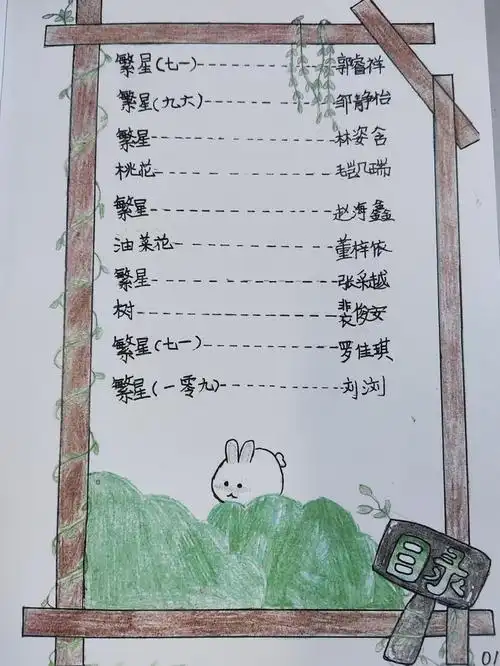 繁星(七一)------------郭睿祥
繁星(九六)------------邹静怡
繁星------------林姿含
桃花------------毛凯瑞
繁星------------赵海鑫
油菜花------------董梓依
繁星------------张采越
树------------裴俊安
繁星(七一)------------罗佳琪
繁星(一零九)------------刘浏
目录
01